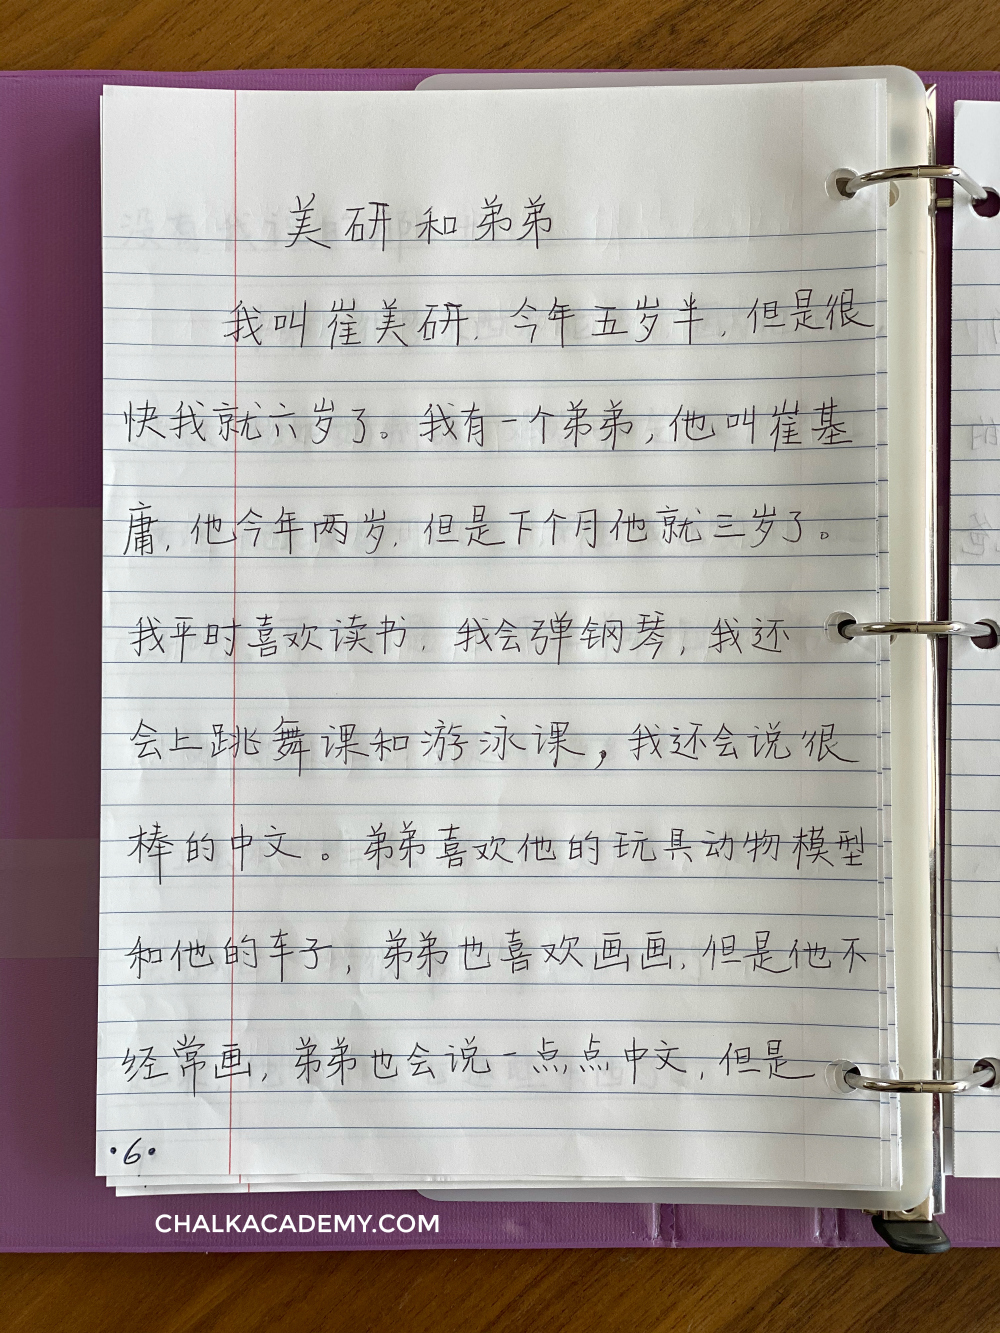 美研和弟弟
我叫崔美研,今年五岁半,但是很
快我就六岁了。我有一个弟弟,他叫崔基
庸,他今年两岁,但是下个月他就三岁了。
我平时喜欢读书,我会弹钢琴,我还
会上跳舞课和游泳课,我还会说很
棒的中文。弟弟喜欢他的玩具动物模型
和他的车子,弟弟也喜欢画画,但是他不
经常画,弟弟也会说一点点中文,但是
·6·
CHALKACADEMY.COM